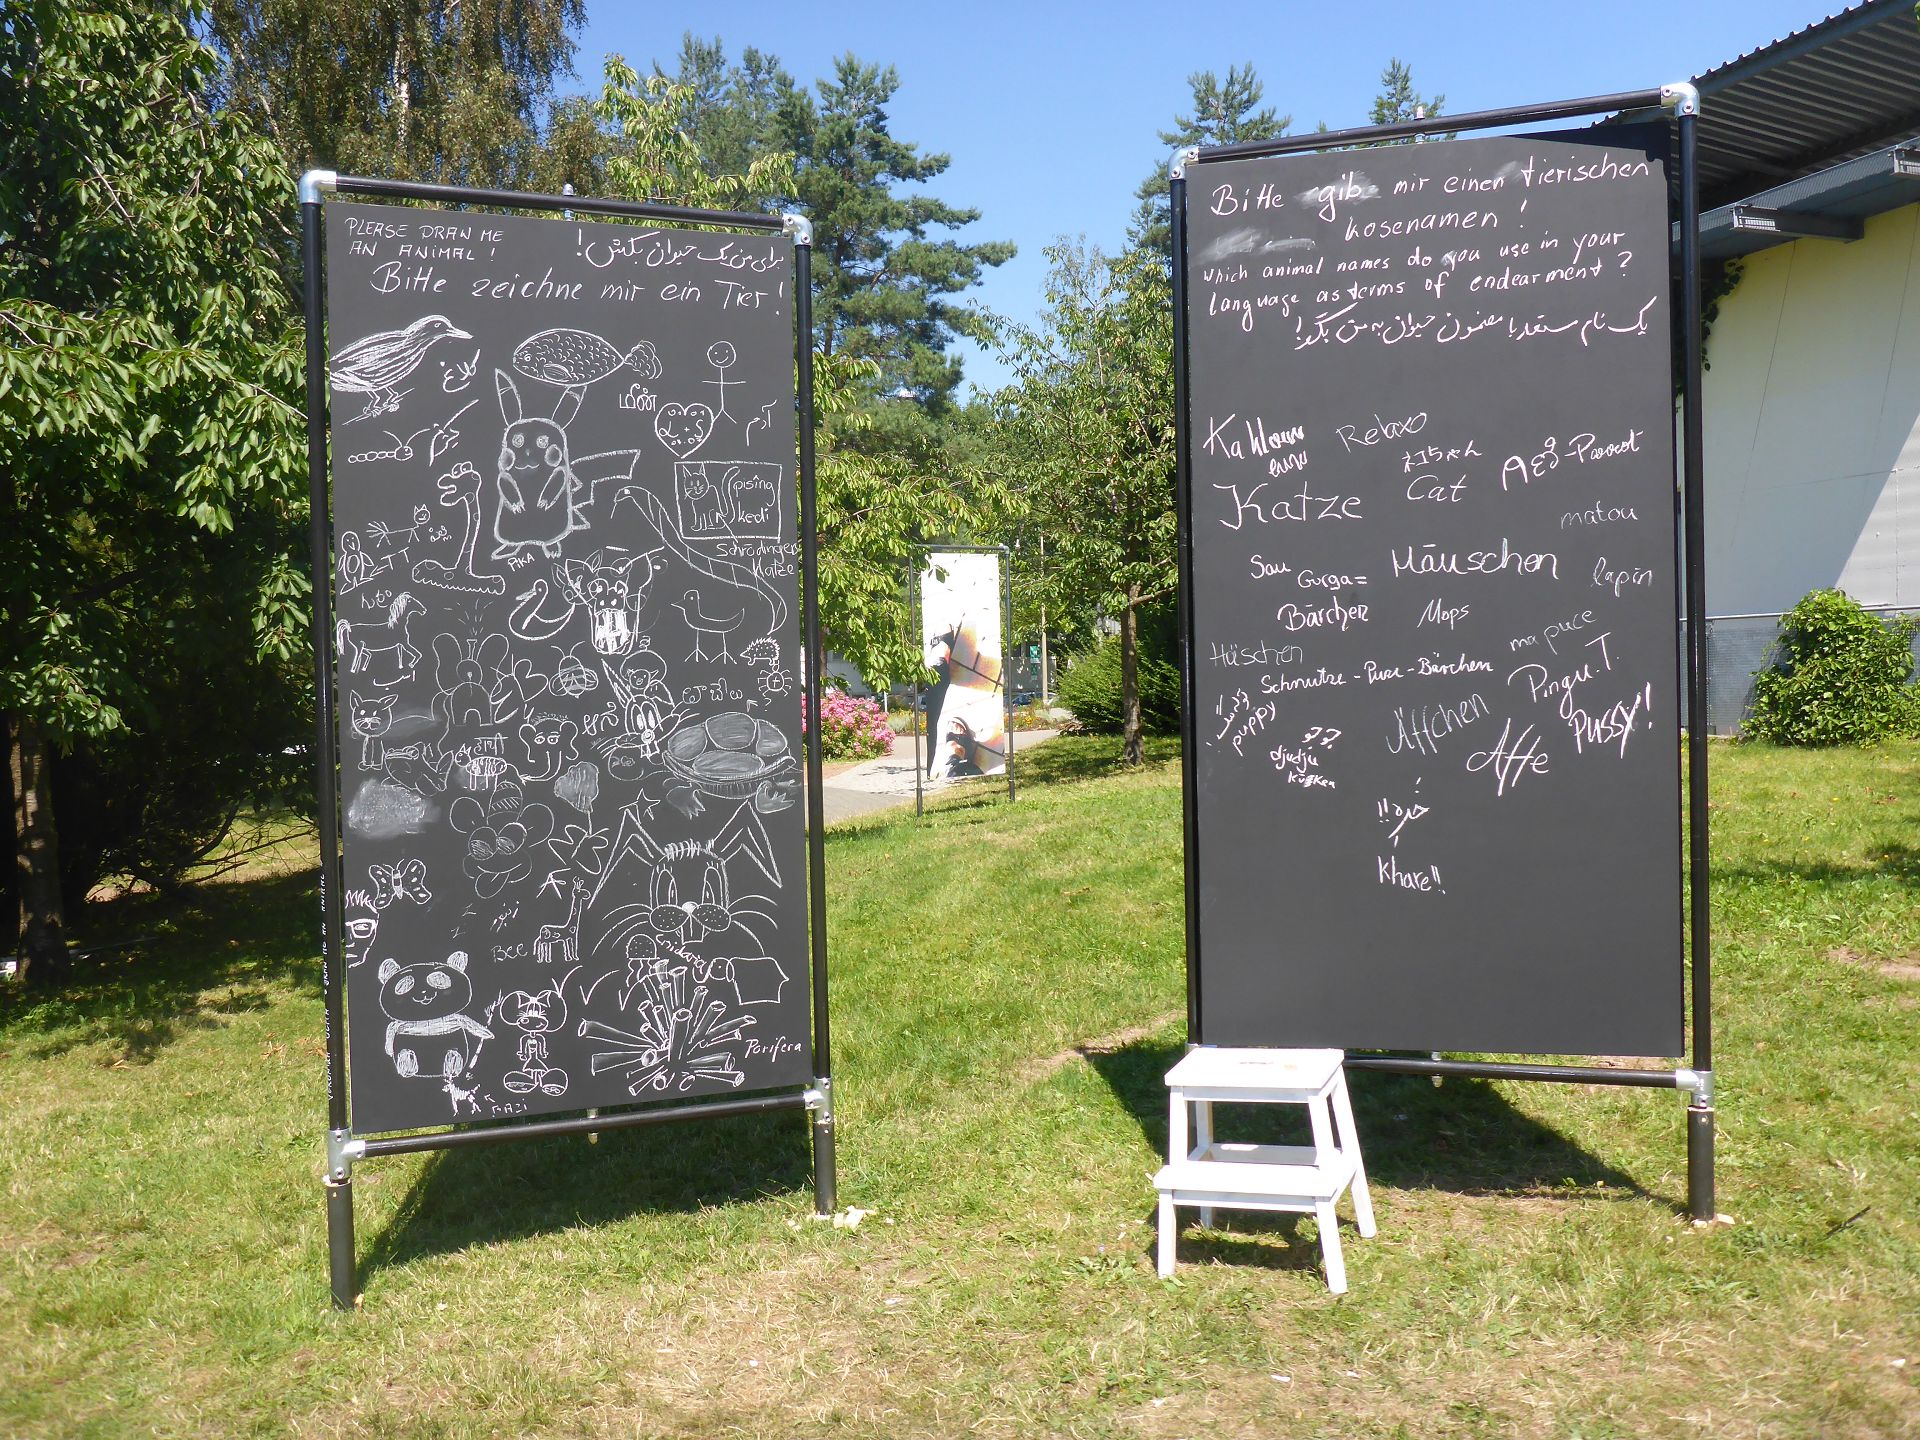 PLEASE DRAW ME
AN ANIMAL!
برای من یک حیوان بکش!
Bitte zeichne mir ein Tier!
மீன்
L+S
آدم
pising
kedi
Schrödingers
Katze
PIKA
हाथी
زنبور
Bee
Cnidaria
Porifera
Bitte gib mir einen tierischen
kosenamen!
Which animal names do you use in your
language as terms of endearment?
Relaxo
ネコちゃん
Cat
Parrot
Katze
matou
Sau
Mäuschen
lapin
Bärchen
Mops
ma puce
Häschen
Schnutze-Puze-Bärchen
Pingu.T.
puppy
Äffchen
PUSSY!
djudju
Küken
Affe
خره!!
Khare!!